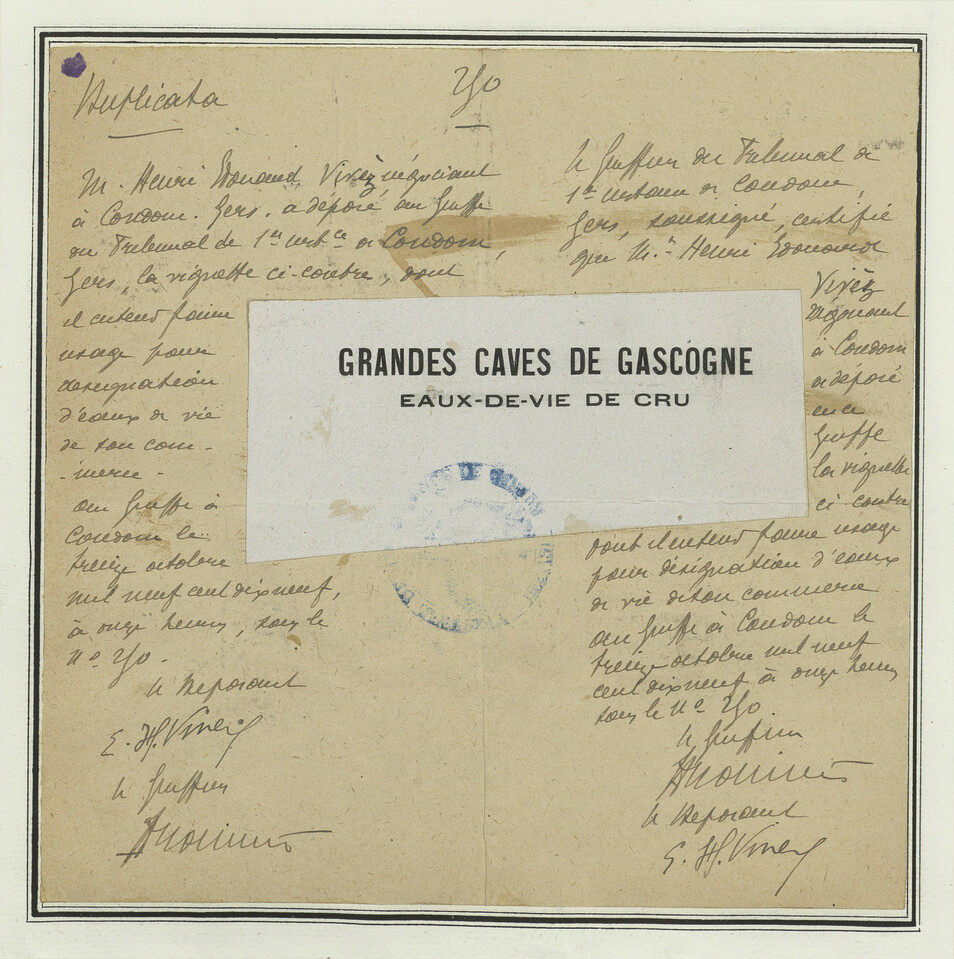 Duplicata
250
M. Henri Edouard Vivèz négociant
à Condom. Gers. a déposé au Greffe
du Tribunal de 1re instce de Condom,
Gers, la vignette ci-contre, dont
il entend faire
usage pour
désignation
d'eaux de vie
de son com-
-merce -
au Greffe à
Condom le
treize octobre
mil neuf cent dix neuf,
à onze heures, sous le
No 250.
Le Déposant
E. H. Vivèz
Le Greffier
Le Greffier du Tribunal de
1re instance de Condom,
Gers, soussigné, certifie
que Mr Henri Edouard
Vivèz
négociant
à Condom
a déposé
en ce
Greffe
la vignette
ci contre
dont il entend faire usage
pour désignation d'eaux
de vie de son commerce
au Greffe à Condom le
treize octobre mil neuf
cent dix neuf à onze heures
sous le No 250.
Le Greffier
Le Déposant
E. H. Vivèz
GRANDES CAVES DE GASCOGNE
EAUX-DE-VIE DE CRU